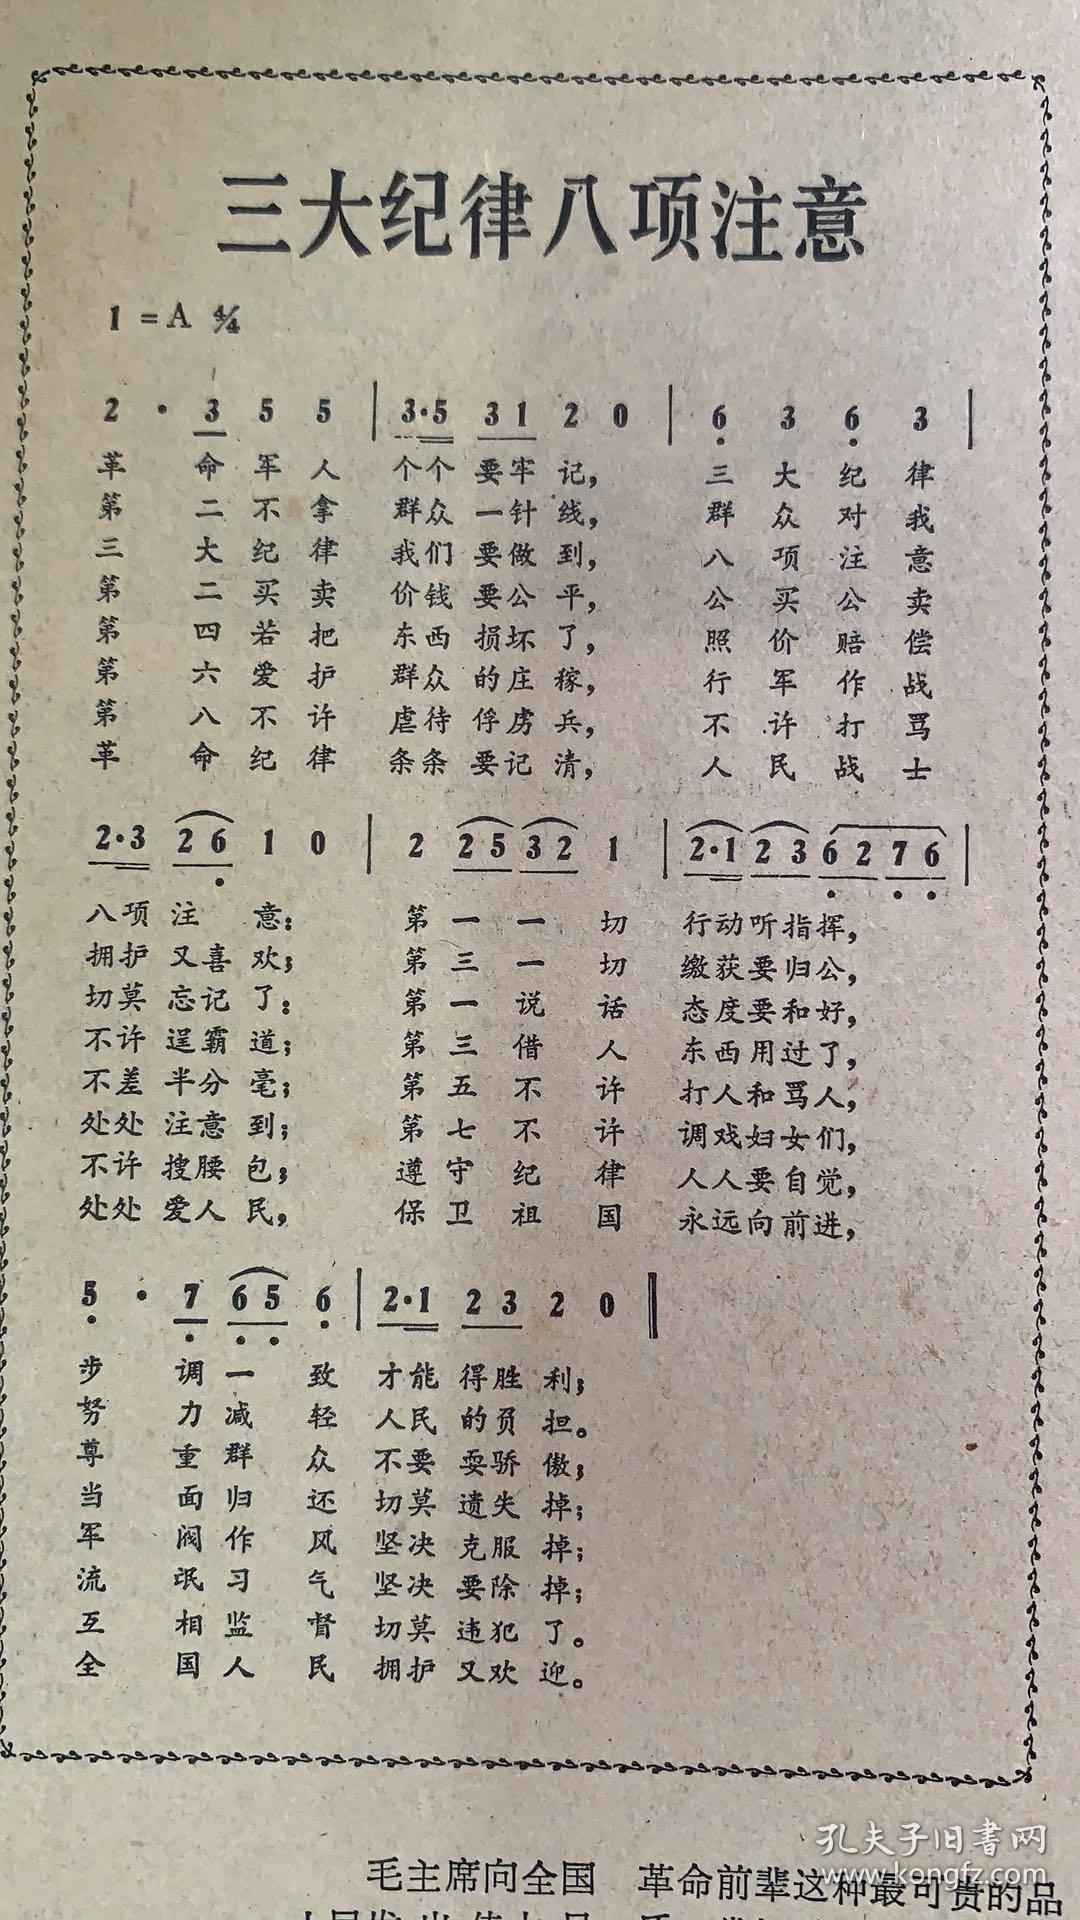 三大纪律八项注意
1=A 4/4
2 · 3 5 5 | 3·5 3 1 2 0 | 6 3 6 3 |
革 命 军 人 个个 要牢 记， 三 大 纪 律
第 二 不 拿 群众 一针 线， 群 众 对 我
三 大 纪 律 我们 要做 到， 八 项 注 意
第 二 买 卖 价钱 要公 平， 公 买 公 卖
第 四 若 把 东西 损坏 了， 照 价 赔 偿
第 六 爱 护 群众 的庄 稼， 行 军 作 战
第 八 不 许 虐待 俘虏 兵， 不 许 打 骂
革 命 纪 律 条条 要记 清， 人 民 战 士
2·3 2 6 1 0 | 2 2 5 3 2 1 | 2·1 2 3 6 2 7 6 |
八项 注 意： 第 一 一 切 行动听指挥，
拥护 又喜 欢； 第 三 一 切 缴获要归公，
切莫 忘记 了： 第 一 说 话 态度要和好，
不许 逞霸 道； 第 三 借 人 东西用过了，
不差 半分 毫； 第 五 不 许 打人和骂人，
处处 注意 到； 第 七 不 许 调戏妇女们，
不许 搜腰 包； 遵 守 纪 律 人人要自觉，
处处 爱人 民， 保 卫 祖 国 永远向前进，
5 · 7 6 5 6 | 2·1 2 3 2 0 ‖
步 调 一 致 才能 得胜 利；
努 力 减 轻 人民 的负 担。
尊 重 群 众 不要 耍骄 傲；
当 面 归 还 切莫 遗失 掉；
军 阀 作 风 坚决 克服 掉；
流 氓 习 气 坚决 要除 掉；
互 相 监 督 切莫 违犯 了。
全 国 人 民 拥护 又欢 迎。
孔夫子旧书网
www.kongfz.com
毛主席向全国 革命前辈这种最可贵的品